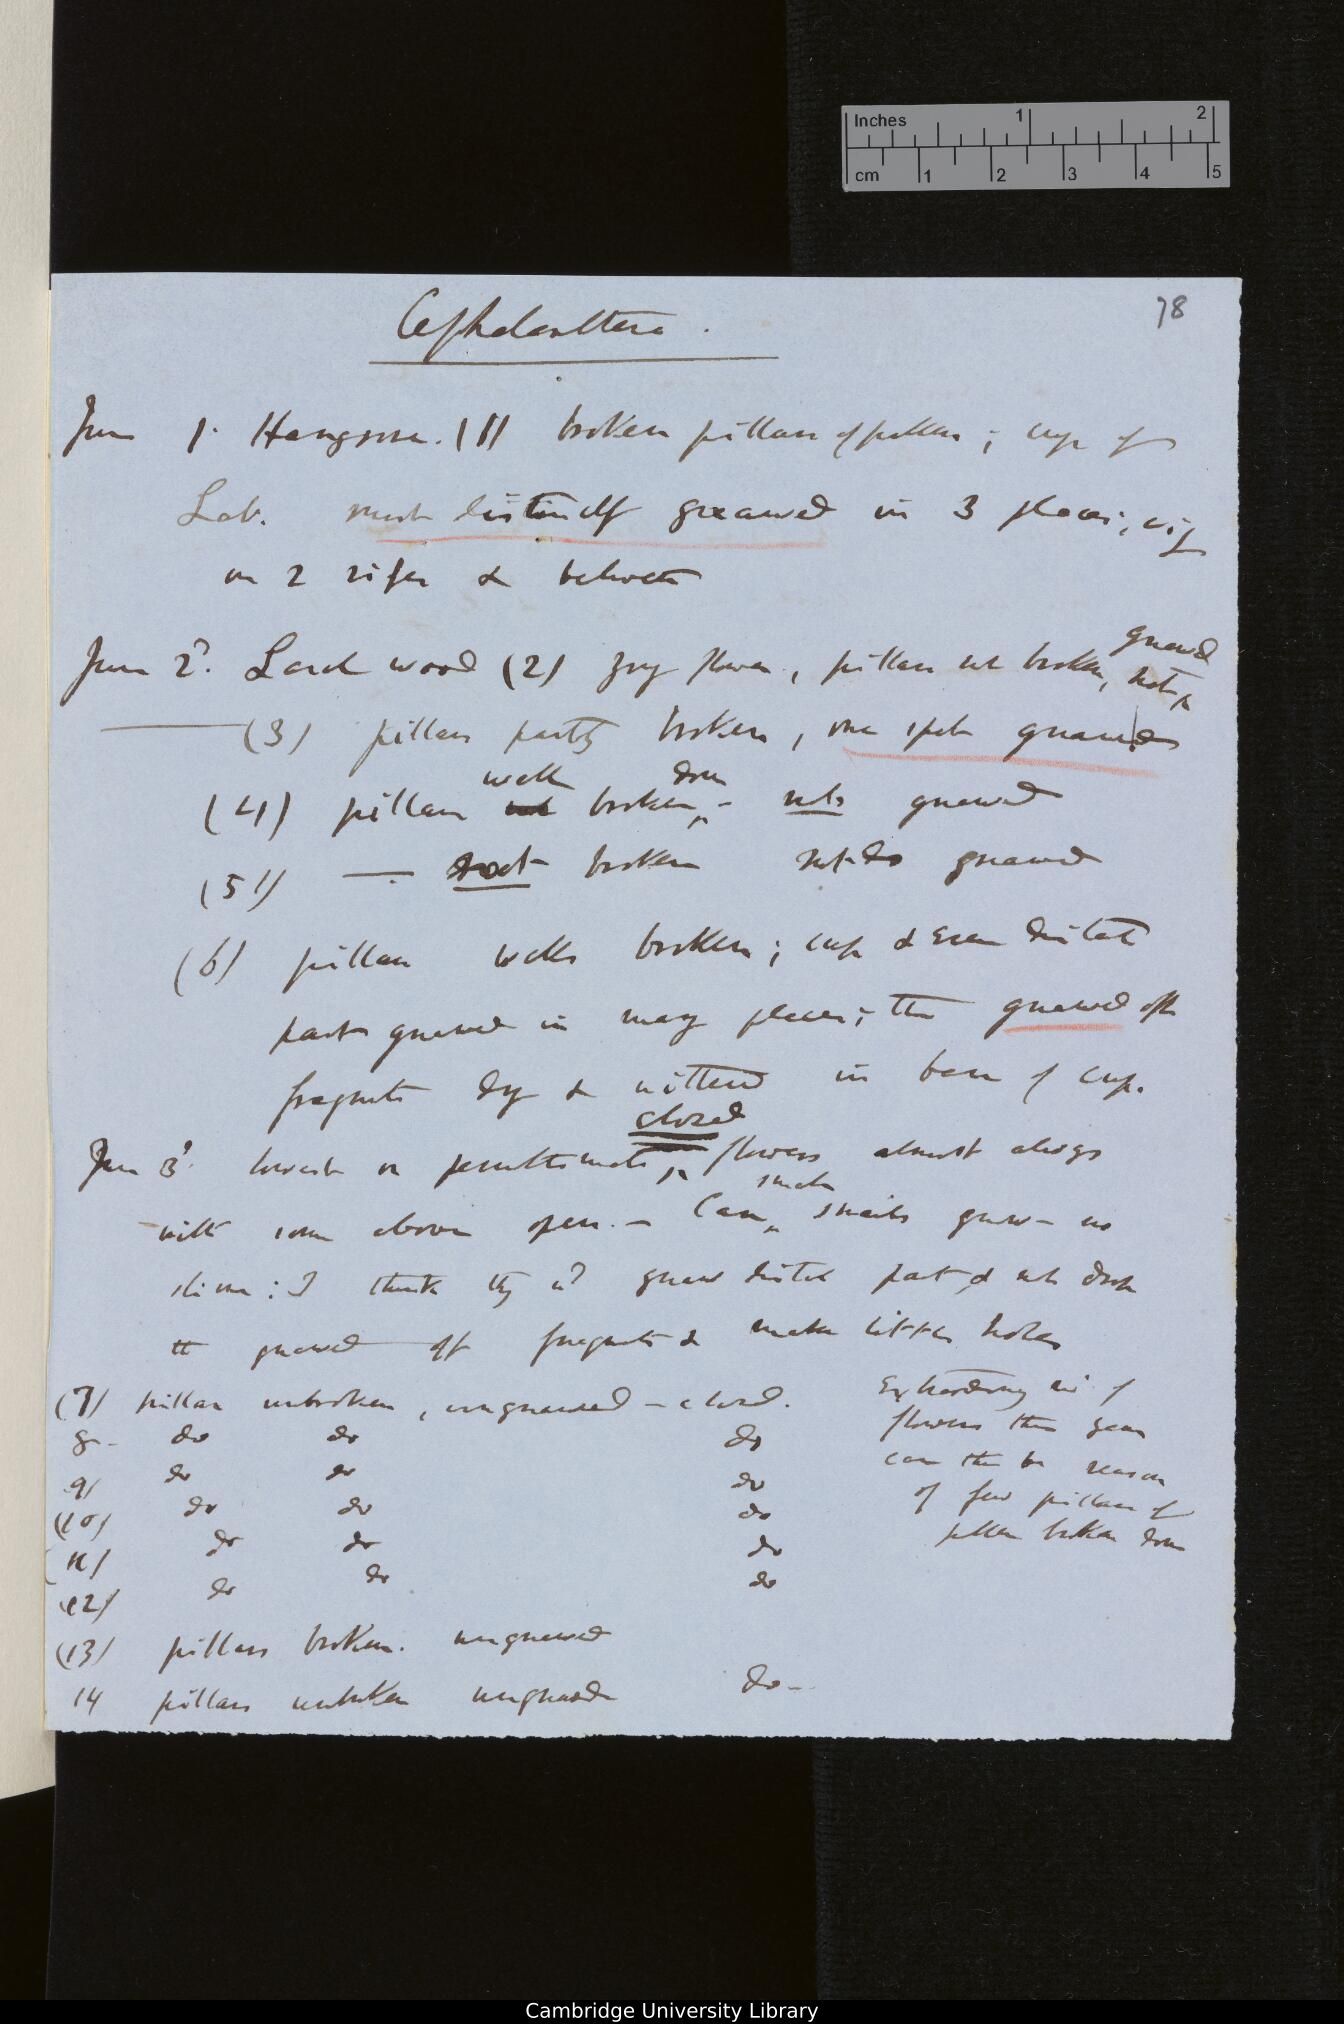 Inches 1 2
cm 1 2 3 4 5
78
Cephalanthera.
June 1. Hangrove. (1) broken pillars of pollen; cup of
Lab. most distinctly gnawed in 3 places; viz
on 2 ridges & between
June 2d. Larch wood (2) flower, pillars not broken, not gnawed
(3) pillars partly broken, one spot gnawed
(4) pillars well broken down - not gnawed
(5) — not broken not do gnawed
(6) pillars well broken; cup & even distal
part gnawed in many places; the gnawed off
fragments dry & withered in base of cup.
June 3d. lowest or penultimate closed flowers almost always
with some above open. — Can small snails gnaw - no
slime: I think they wd gnaw distal part & not
the gnawed off fragments & make little holes
(7) pillars unbroken, ungnawed - closed.
8 - do do do
9) do do do
(10) do do do
(11) do do do
(12) do do do
(13) pillars broken. ungnawed
14 pillars unbroken ungnawed do -
Extraordinary of
flowers this year
can this be reason
of few pillars of
pollen broken down
Cambridge University Library